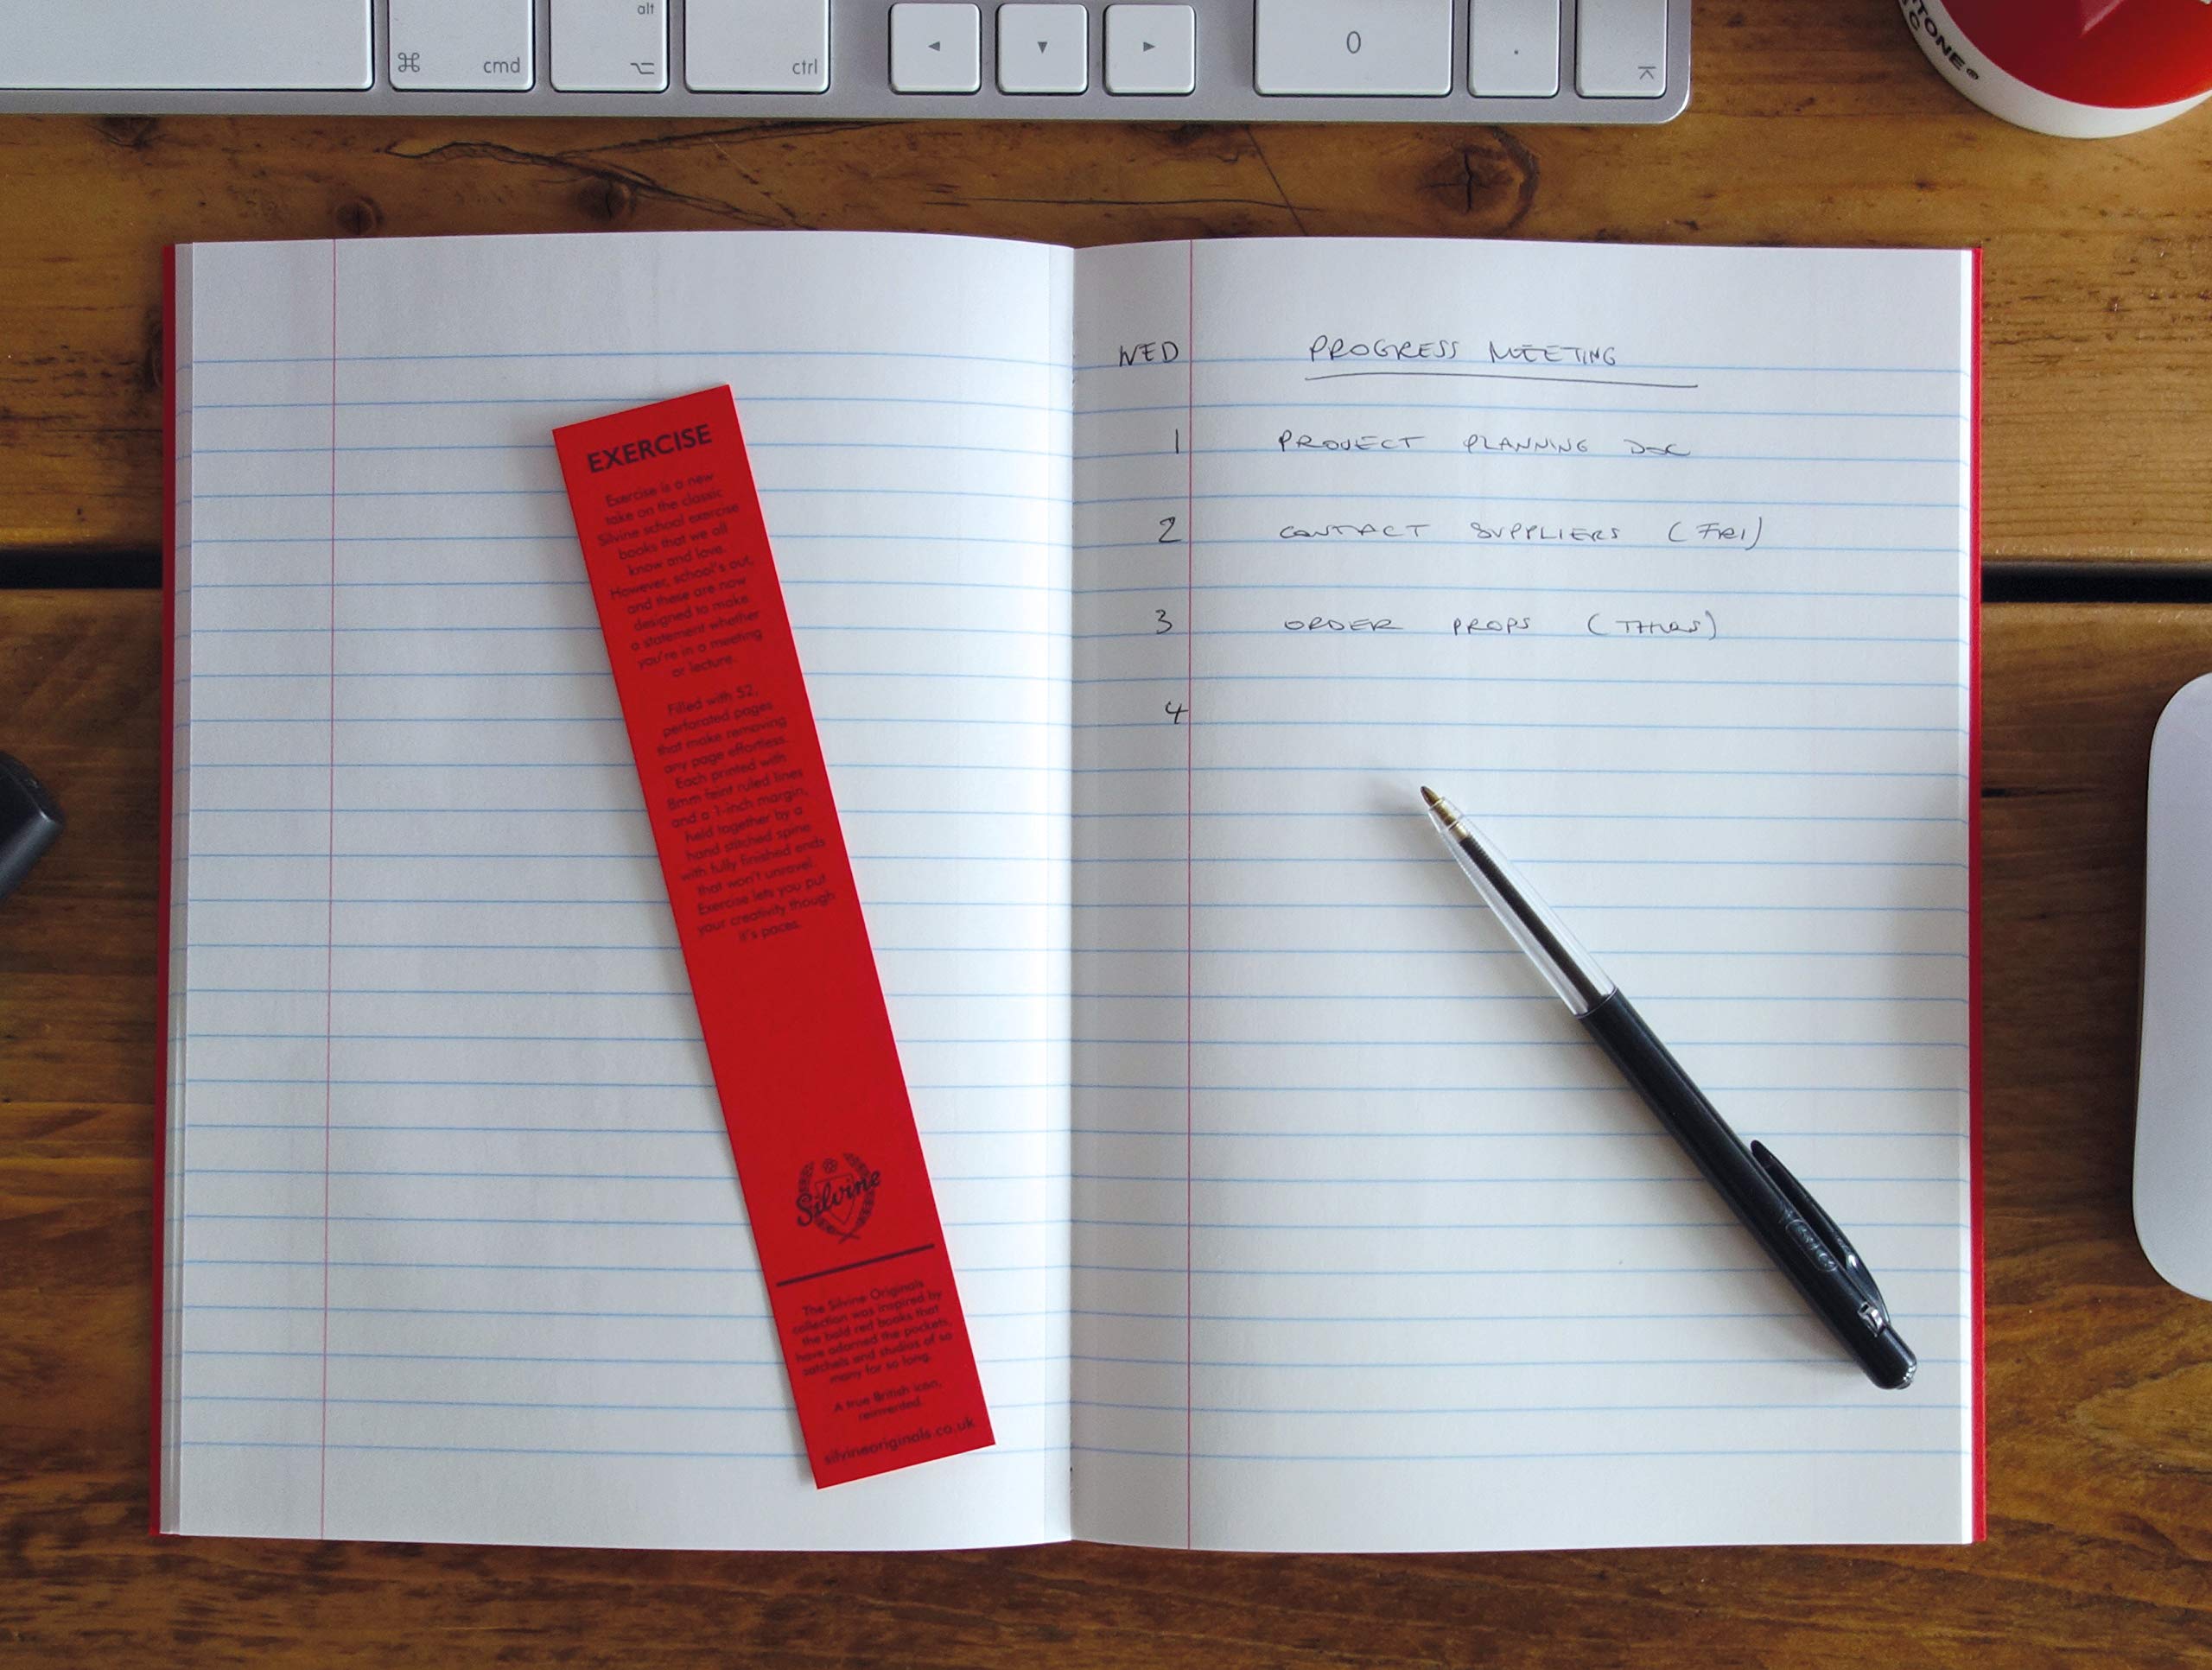 alt
⌘ cmd ⌥ ctrl ◄ ▼ ► 0 .
WED PROGRESS MEETING
1 PROJECT PLANNING DOC
2 CONTACT SUPPLIERS (FRI)
3 ORDER PROPS (THURS)
4
EXERCISE
Exercise is a new
take on the classic
Silvine school exercise
books that we all
know and love.
However, school's out,
and these are now
designed to make
a statement whether
you're in a meeting
or lecture.
Filled with 52,
perforated pages
that make removing
any page effortless.
Each printed with
8mm feint ruled lines
and a 1-inch margin,
held together by a
hand stitched spine
with fully finished ends
that won't unravel.
Exercise lets you put
your creativity though
it's paces.
Silvine
The Silvine Originals
collection was inspired by
the bold red books that
have adorned the pockets,
satchels and studios of so
many for so long.
A true British icon,
reinvented.
silvineoriginals.co.uk